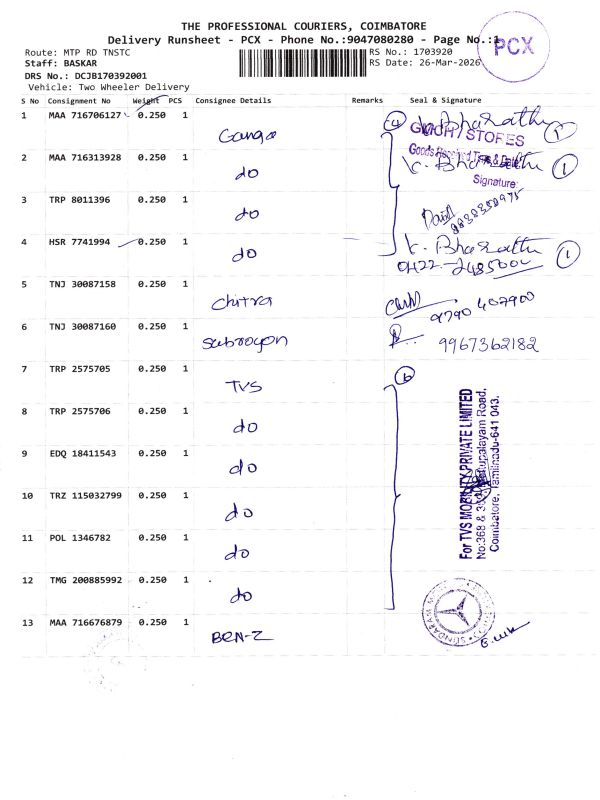 THE PROFESSIONAL COURIERS, COIMBATORE
Delivery Runsheet - PCX - Phone No.:9047080280 - Page No.:1
PCX
Route: MTP RD TNSTC
RS No.: 1703920
Staff: BASKAR
RS Date: 26-Mar-2026
DRS No.: DCJB170392001
Vehicle: Two Wheeler Delivery
S No Consignment No Weight PCS Consignee Details Remarks Seal & Signature
1 MAA 716706127 0.250 1 Ganga 4 K. Bharathi 1
STORES
Goods Received Time & Date
2 MAA 716313928 0.250 1 do K. Bharathi 1
Signature:
3 TRP 8011396 0.250 1 do
4 HSR 7741994 0.250 1 do K. Bharathi 1
0422-2485000
5 TNJ 30087158 0.250 1 chitra 9790 407900
6 TNJ 30087160 0.250 1 Subroyon 9967362182
7 TRP 2575705 0.250 1 TVS 6
8 TRP 2575706 0.250 1 do
9 EDQ 18411543 0.250 1 do
10 TRZ 115032799 0.250 1 do
11 POL 1346782 0.250 1 do
12 TMG 200885992 0.250 1 do
For TVS MOBILITY PRIVATE LIMITED
Coimbatore, Tamilnadu-641 043.
13 MAA 716676879 0.250 1 BEN-Z
SUNDARAM MOTORS